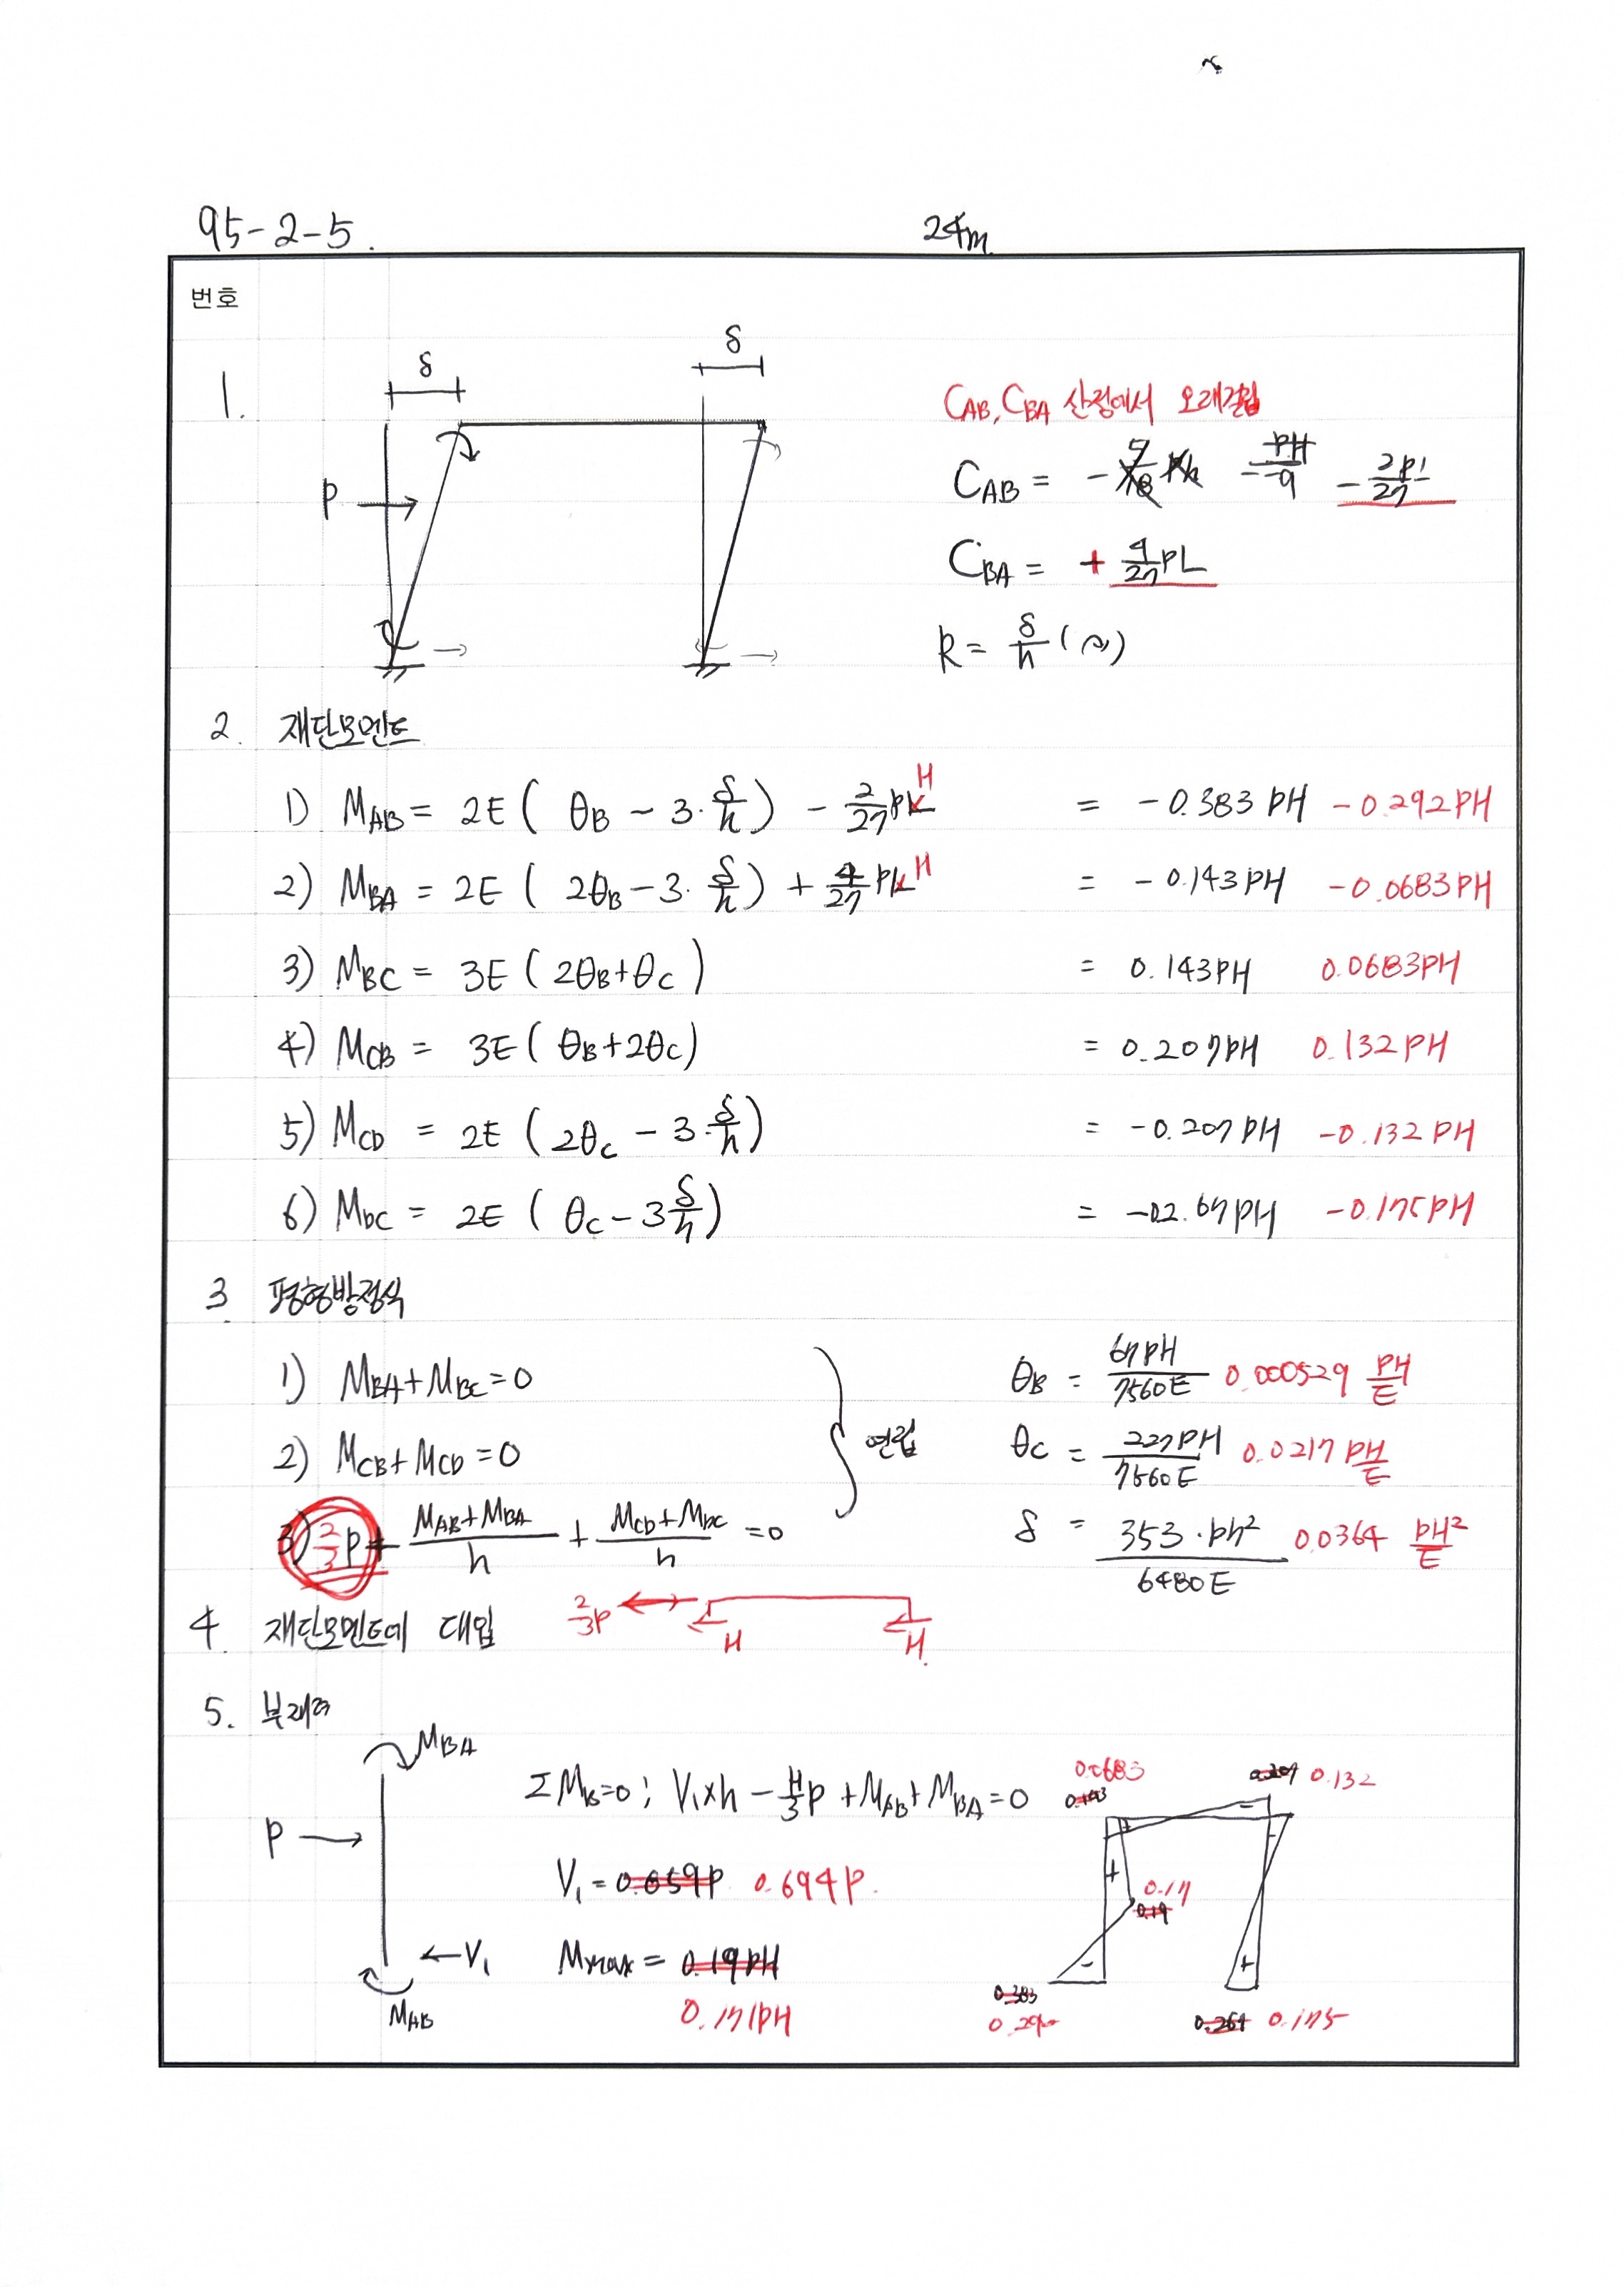 95-2-5. 24m
번호
1. δ δ
P
C_AB, C_BA 산정에서 오래걸림
C_AB = - 2PL/27
C_BA = + 4/27 PL
R = δ/h (↷)
2. 재단모멘트
1) M_AB = 2E ( θ_B - 3·δ/h ) - 2/27 PH = -0.383 PH -0.292PH
2) M_BA = 2E ( 2θ_B - 3·δ/h ) + 4/27 PH = -0.143PH -0.0683PH
3) M_BC = 3E ( 2θ_B + θ_C ) = 0.143PH 0.0683PH
4) M_CB = 3E ( θ_B + 2θ_C ) = 0.207PH 0.132PH
5) M_CD = 2E ( 2θ_C - 3·δ/h ) = -0.207PH -0.132PH
6) M_DC = 2E ( θ_C - 3 δ/h ) = -02.67PH -0.175PH
3 평형방정식
1) M_BA + M_BC = 0
2) M_CB + M_CD = 0
3) 2/3 P + (M_AB + M_BA)/h + (M_CD + M_DC)/h = 0
연립
θ_B = 67PH/7560E 0.000529 PH/E
θ_C = 227PH/7560E 0.0217 PH/E
δ = 353·Ph²/6480E 0.0364 PH²/E
4. 재단모멘트에 대입 2/3P H H.
5. 부재력
M_BA
P
V₁
M_AB
ΣM_B=0 ; V₁×h - H/3 P + M_AB + M_BA = 0
V₁ = 0.659P 0.694P.
Mmax = 0.19PH
0.171PH
0.0683 0.207 0.132
0.143
+ - + -
0.17
0.19
- +
0.383 0.264 0.175
0.292